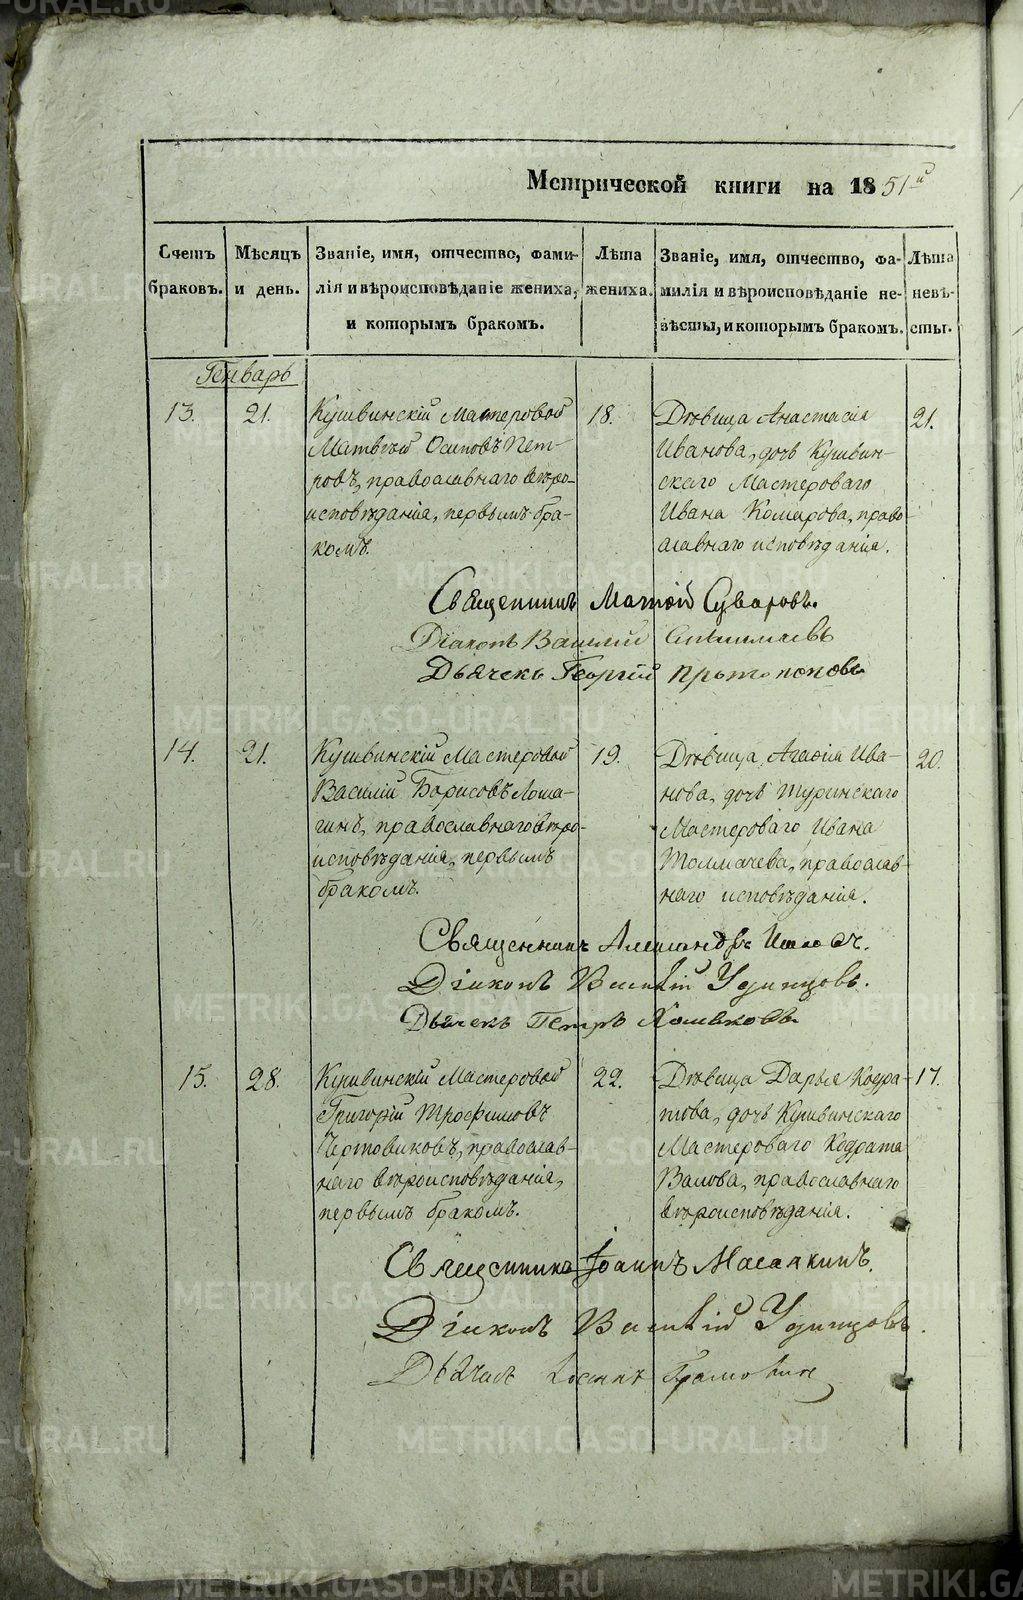 Метрической книги на 1851й
Счетъ браковъ.
Мѣсяцъ и день.
Званіе, имя, отчество, фами-
лія и вѣроисповѣданіе жениха,
и которымъ бракомъ.
Лѣта жениха.
Званіе, имя, отчество, фа-
милія и вѣроисповѣданіе не-
вѣсты, и которымъ бракомъ.
Лѣта невѣ-
сты.
Генварь
13.
21.
Кушвинскій Мастеровой
Матвѣй Осиповъ Пет-
ровъ, православнаго вѣро-
исповѣданія, первымъ бра-
комъ.
18.
Дѣвица Анастасія
Иванова, дочь Кушвин-
скаго Мастероваго
Ивана Комарова, право-
славнаго исповѣданія.
21.
Священникъ Матѳій Суваровъ.
Діаконъ Василій
Дьячекъ Георгій Протопоповъ
14.
21.
Кушвинскій Мастеровой
Василій Борисовъ Лоша-
гинъ, православнаго вѣро-
исповѣданія, первымъ
бракомъ.
19.
Дѣвица, Агафія Ива-
нова, дочь Туринскаго
Мастероваго Ивана
Толмачева, православ-
наго исповѣданія.
20.
Священникъ Александръ
Діаконъ Василій Удинцовъ.
Дьячекъ Петръ
15.
28.
Кушвинскій Мастеровой
Григорій Трофимовъ
Чертовиковъ, православ-
наго вѣроисповѣданія,
первымъ бракомъ.
22.
Дѣвица Дарья Кодра-
това, дочь Кушвинскаго
Мастероваго Кодрата
Валова, православнаго
вѣроисповѣданія.
17.
Священникъ Іоаннъ
Діаконъ Василій Удинцовъ.
Дьячекъ